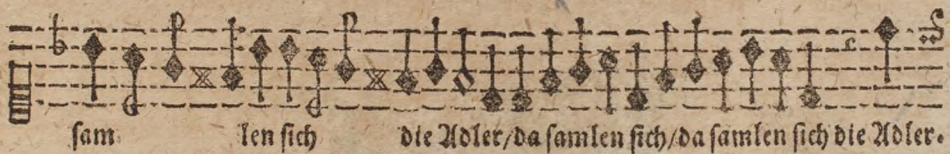 ſam len ſich die Adler/da ſamlen ſich/da ſamlen ſich die Adler.